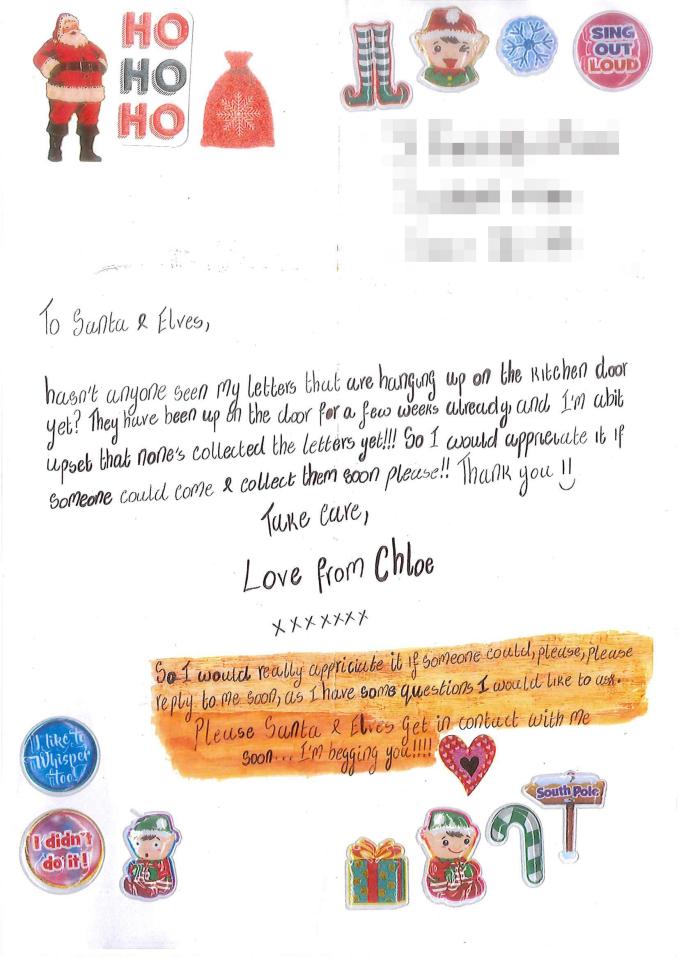 HO
HO
HO
SING
OUT
LOUD
To Santa & Elves,
hasn't anyone seen my letters that are hanging up on the kitchen door
yet? They have been up on the door for a few weeks already, and I'm abit
upset that none's collected the letters yet!!! So I would appreciate it if
someone could come & collect them soon please!! Thank you !!
Take care,
Love from Chloe
xxxxxxx
So I would really appriciate it if someone could, please, please
reply to me soon, as I have some questions I would like to ask..
Please Santa & Elves get in contact with me
soon... I'm begging you!!!!
I like to
Whisper
too!
I didn't
do it!
South Pole